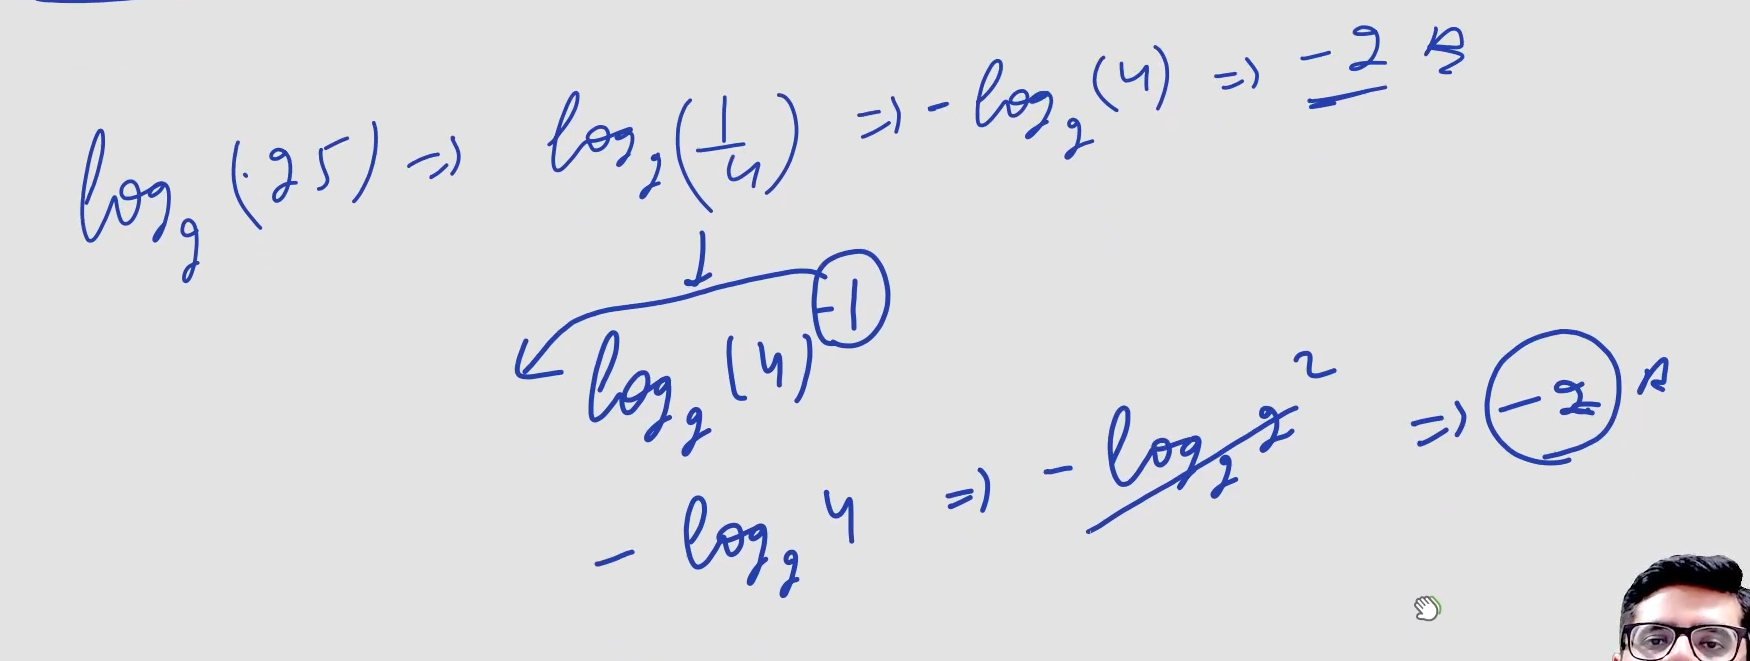 log₂(.25) => log₂(1/4) => -log₂(4) => -2
log₂(4)⁻¹
-log₂4 => -log₂2² => -2